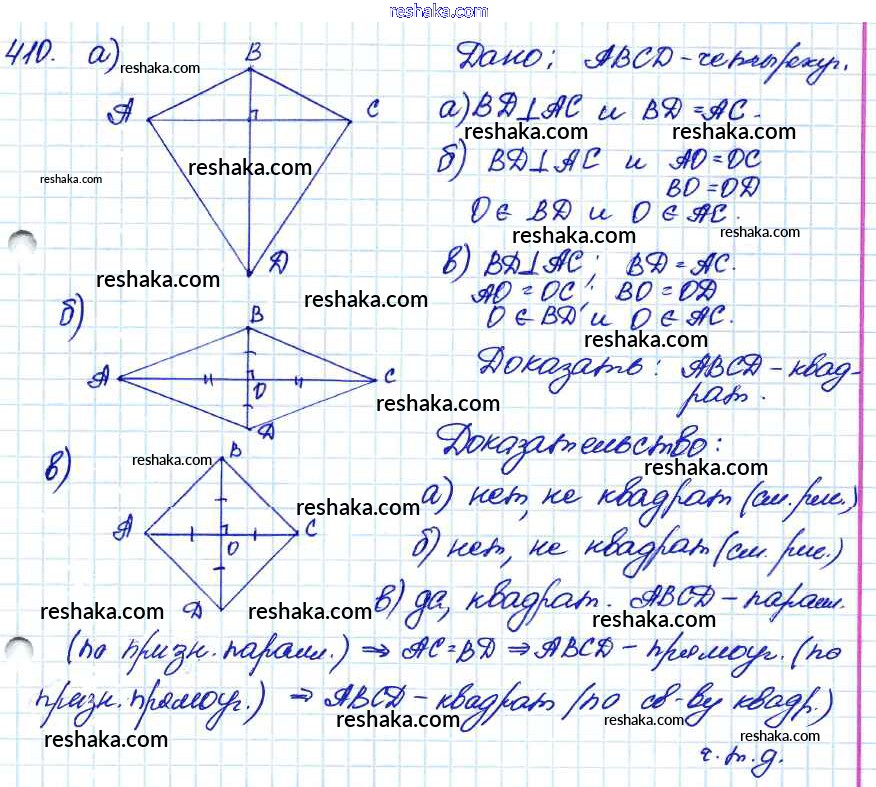 reshaka.com
410. а) reshaka.com
B
A
C
D
reshaka.com
reshaka.com
reshaka.com
Дано: ABCD – четырехуг.
а) BD⊥AC и BD = AC.
reshaka.com reshaka.com
б) BD⊥AC и AO = OC
BO = OD
O ∈ BD и O ∈ AC.
reshaka.com reshaka.com
в) BD⊥AC; BD = AC.
AO = OC; BO = OD
O ∈ BD и O ∈ AC.
reshaka.com
reshaka.com
б)
B
A
O
C
D
reshaka.com
Доказать: ABCD – квад-
рат.
Доказательство:
reshaka.com
в) reshaka.com
B
A
O
C
D
reshaka.com
а) нет, не квадрат (см. рис.)
reshaka.com
б) нет, не квадрат (см. рис.)
reshaka.com reshaka.com
в) да, квадрат. ABCD – паралл.
reshaka.com
(по призн. паралл.) ⇒ AC = BD ⇒ ABCD – прямоуг. (по
reshaka.com reshaka.com
призн. прямоуг.) ⇒ ABCD – квадрат (по св-ву квадр.)
reshaka.com reshaka.com reshaka.com
ч.т.д.